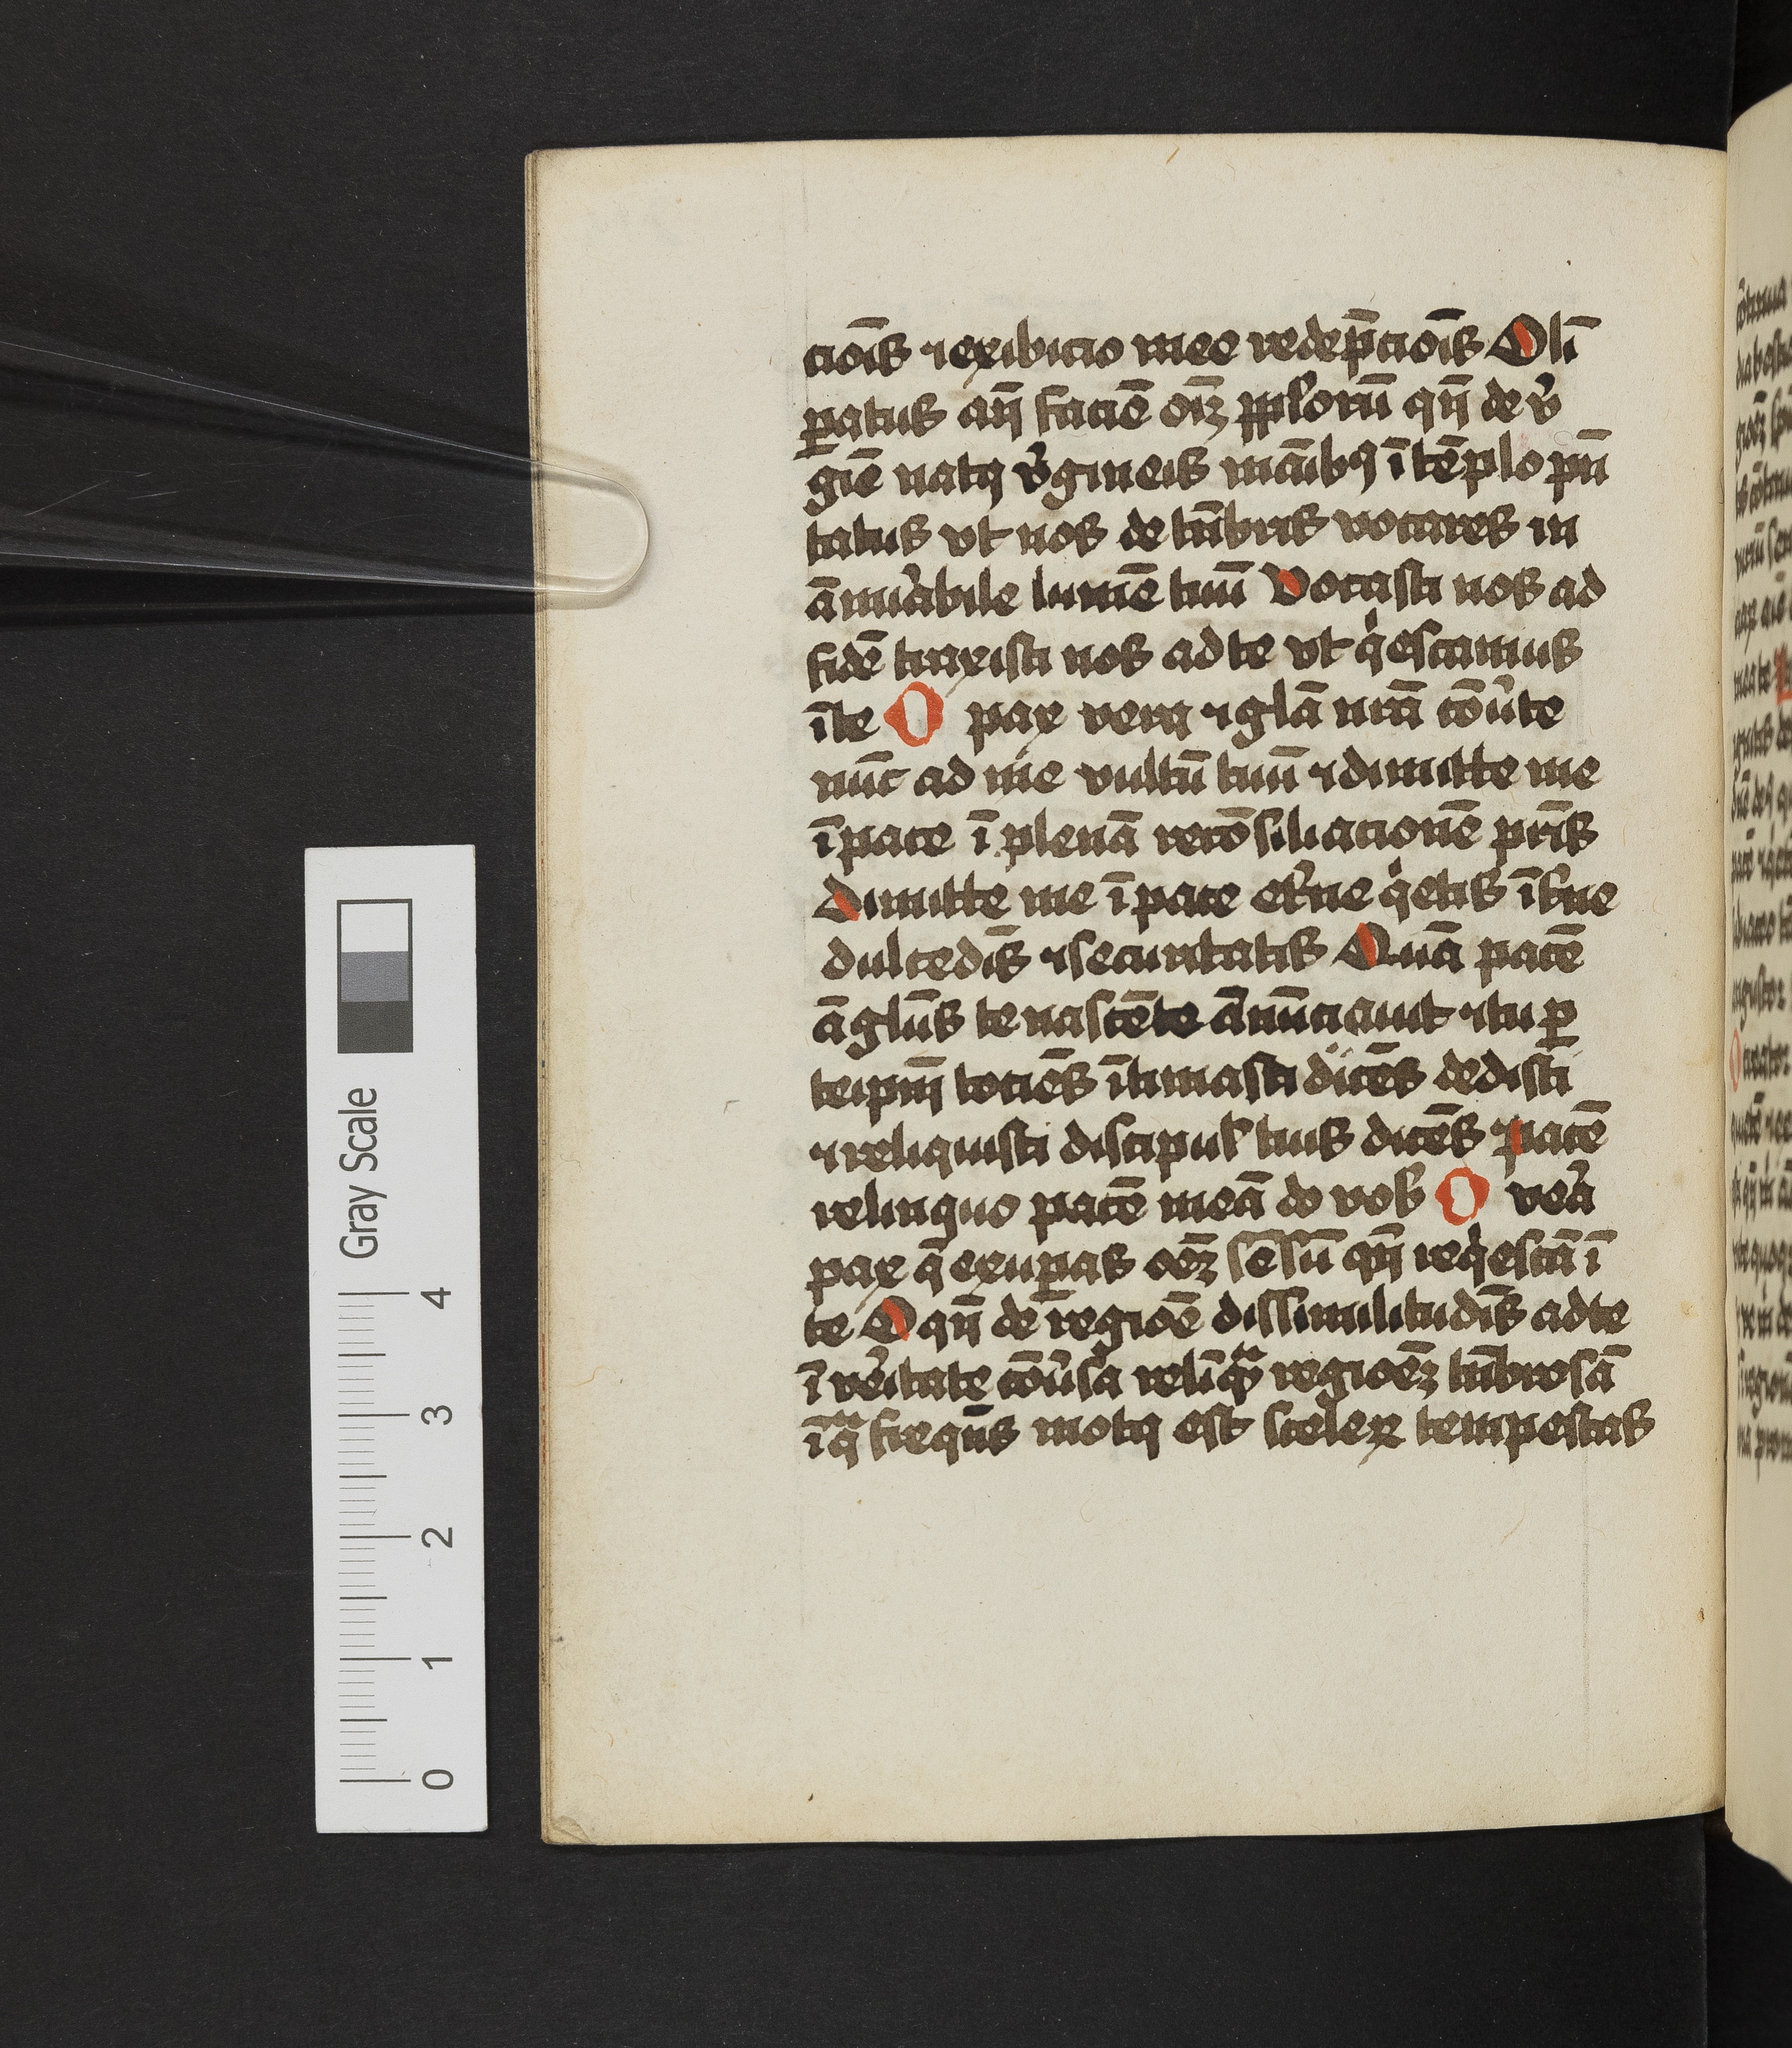 cioı̄s ⁊ exibicio mee redep̄cioı̄s Olī
ꝑatus an̄ faciē oı̄ꝫ pp̄lorū qn̄ de v̉
giē natꝯ v̉gineis māıbꝯ ī tēplo pn̄
tatus vt nos de tn̄bris vocares in
āmiͣbile lumē tuū Vocasti nos ad
fidē traxisti nos ad te vt qͥescamus
ī te O pax vera ⁊ gl̄a nr̄a cōủte
nūc ad me vultū tuū ⁊ dimitte me
ī pace ī plenā recōsiliacionē pr̄is
Dimitte me ī pace et̉ne qͥetis īt̉ne
dulcedı̄s ⁊ securitatis Quā pacē
āglūs te nascēte ānūciauit ⁊ tu ꝑ
teipm̄ tociēs ītimasti dicēs dedisti
⁊ reliquisti discipul̉ tuis dicēs pacē
relinquo pacē meā do vob̉ O vẻa
pax q̄ exuꝑas oēꝫ sēsū qn̄ reqͥescā ī
te O qn̄ de regioē dissimilitudı̄s ad te
ī vẻitate cōủsa relīqͣ regioēꝫ tn̄brosā
ī qͣ freqn̄s motꝯ est sceleꝝ tempestas
Gray Scale
4
3
2
1
0